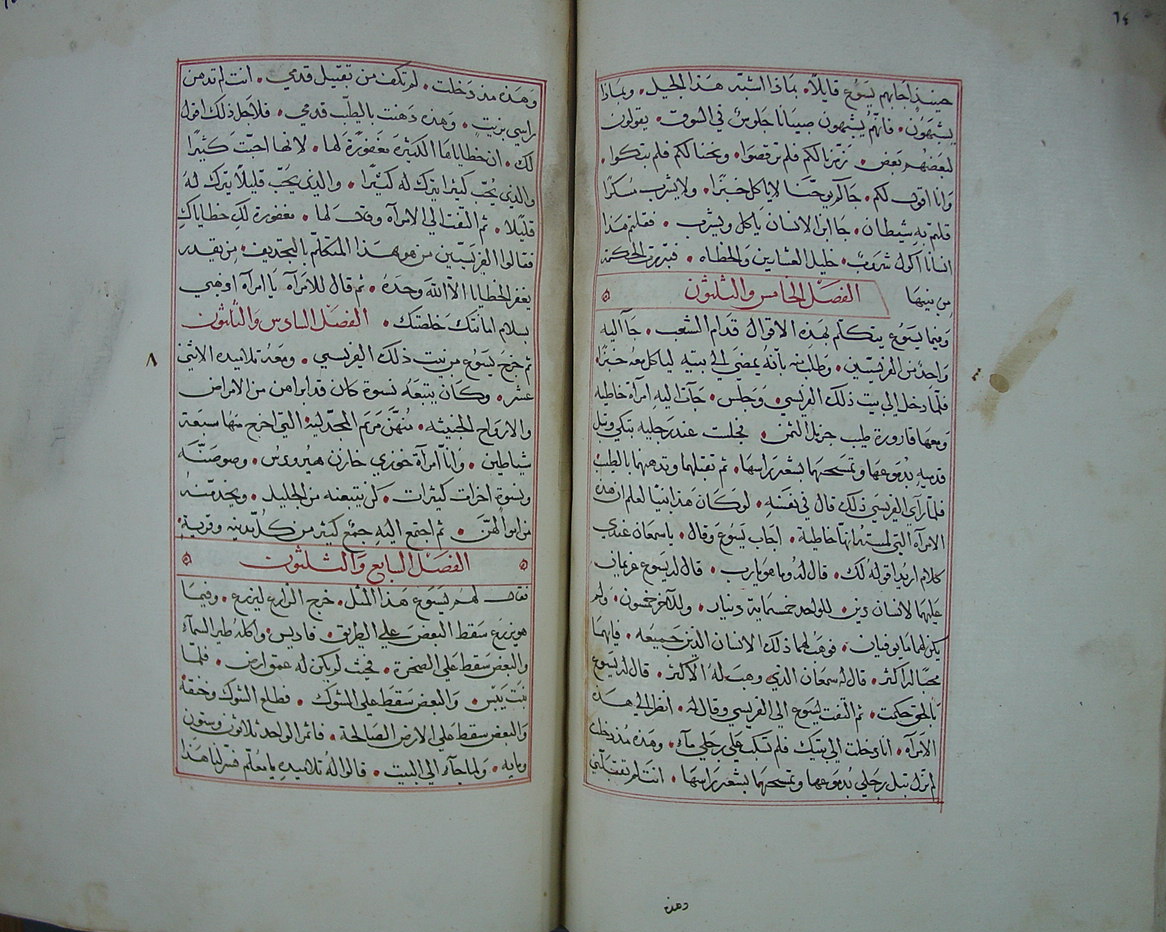 ١٤
حينيذ اجابهم يسوع قايلًا • بماذا اشبّه هذا الجيل • وبماذا
يشبهون • فانهم يشبهون صبيانًا جلوس في السوق • يقولون
لبعضهم بعض • زمّرنا لكم فلم ترقصوا • ونحنا لكم فلم تبكوا •
وانا اقول لكم • جاكم يوحنا لا ياكل خبزًا • ولا يشرب مسكرًا
قلتم به شيطان • جا ابن الانسان ياكل ويشرب • فقلتم هذا
انسانًا اكول شروب • خليل العشارين والخطاه • فتبررت الحكمة
من بينها
الفصل الخامس والثلثون
وفيما يسوع يتكلم بهذه الاقوال قدام الشعب • جا اليه
واحد من الفريسيين • وطلب بانه يمضي الى بيته لياكل معه خبزًا
فلما دخل الى بيت ذلك الفريسي وجلس • جآت اليه امرآة خاطيه
ومعها قارورة طيب جزيل الثمن • فجلست عند رجليه تبكي وتبل
قدميه بدموعها وتمسحهما بشعر راسها • ثم تقبلهما وتدهنهما بالطيب
فلما رآى الفريسي ذلك قال في نفسه • لو كان هذا نبيًا لعلم ان هذه
الامرآه التي لمسته انها خاطية • اجاب يسوع وقال • يا سمعان عندي
كلام اريد اقوله لك • قال له وما هو يارب • قال له يسوع غريمان
عليهما لانسان دين • للواحد خمسماية دينار • وللآخر خمسون • ولم
يكن لهما ما يوفيان • فوهب لهما ذلك الانسان الدين جميعه • فايهما
محبًا له اكثر • قال له سمعان الذي وهب له الاكثر • قال له يسوع
بالحق حكمت • ثم التفت يسوع الى الفريسي وقال له • انظر الى هذه
الامرآه • انا دخلت الى بيتك فلم تسكب على رجلي مآء • وهذه مذ دخلت
لم تزل تبل رجلي بدموعها وتمسحهما بشعر راسها • انت لم تقبلني
وهذه
وهذه مذ دخلت • لم تكف من تقبيل قدمي • انت لم تدهن
راسي بزيت • وهذه دهنت بالطيب قدمي • فلاجل ذلك اقول
لك • ان خطاياها الكثيرة مغفورة لها • لانها احبت كثيرًا
والذي يحب كثيرًا يترك له كثيرًا • والذي يحب قليلًا يترك له
قليلًا • ثم التفت الى الامرآه وقال لها • مغفورة لكِ خطاياكِ
فقالوا الفريسيين من هو هذا المتكلم بالتجديف • من يقدر
يغفر الخطايا الا الله وحده • ثم قال للامرآة يا امرآه اذهبي
بسلام امانتك خلصتك • الفصل السادس والثلثون
ثم خرج يسوع من بيت ذلك الفريسي • ومعه تلاميذه الاثني
٨
عشر • وكان يتبعه نسوة كان قد ابراهن من الامراض
والارواح الخبيثه • منهن مريم المجدلية التي اخرج منها سبعة
شياطين • ويانا امرآة خوزي خازن هيرودس • وصوصنّه
ونسوة اخرات كثيرات • كن يتبعنه من الجليل • ويخدمنه
من اموالهنّ • ثم اجتمع اليه جمع كثير من كل مدينه وقرية •
الفصل السابع والثلثون
فقال لهم يسوع هذا المثل • خرج الزارع ليزرع • وفيما
هو يزرع سقط البعض على الطريق • فاديس واكله طير السمآء
والبعض سقط على الصخرة • فحيث لم يكن له عمق ارض • فلما
نبت يبس • والبعض سقط على الشوك • فطلع الشوك وخنقه
والبعض سقط على الارض الصالحة • فاثمر الواحد ثلاثون وستون
ومايه • ولما جآء الى البيت • قالوا له تلاميذه يا معلم فسر لنا هذا